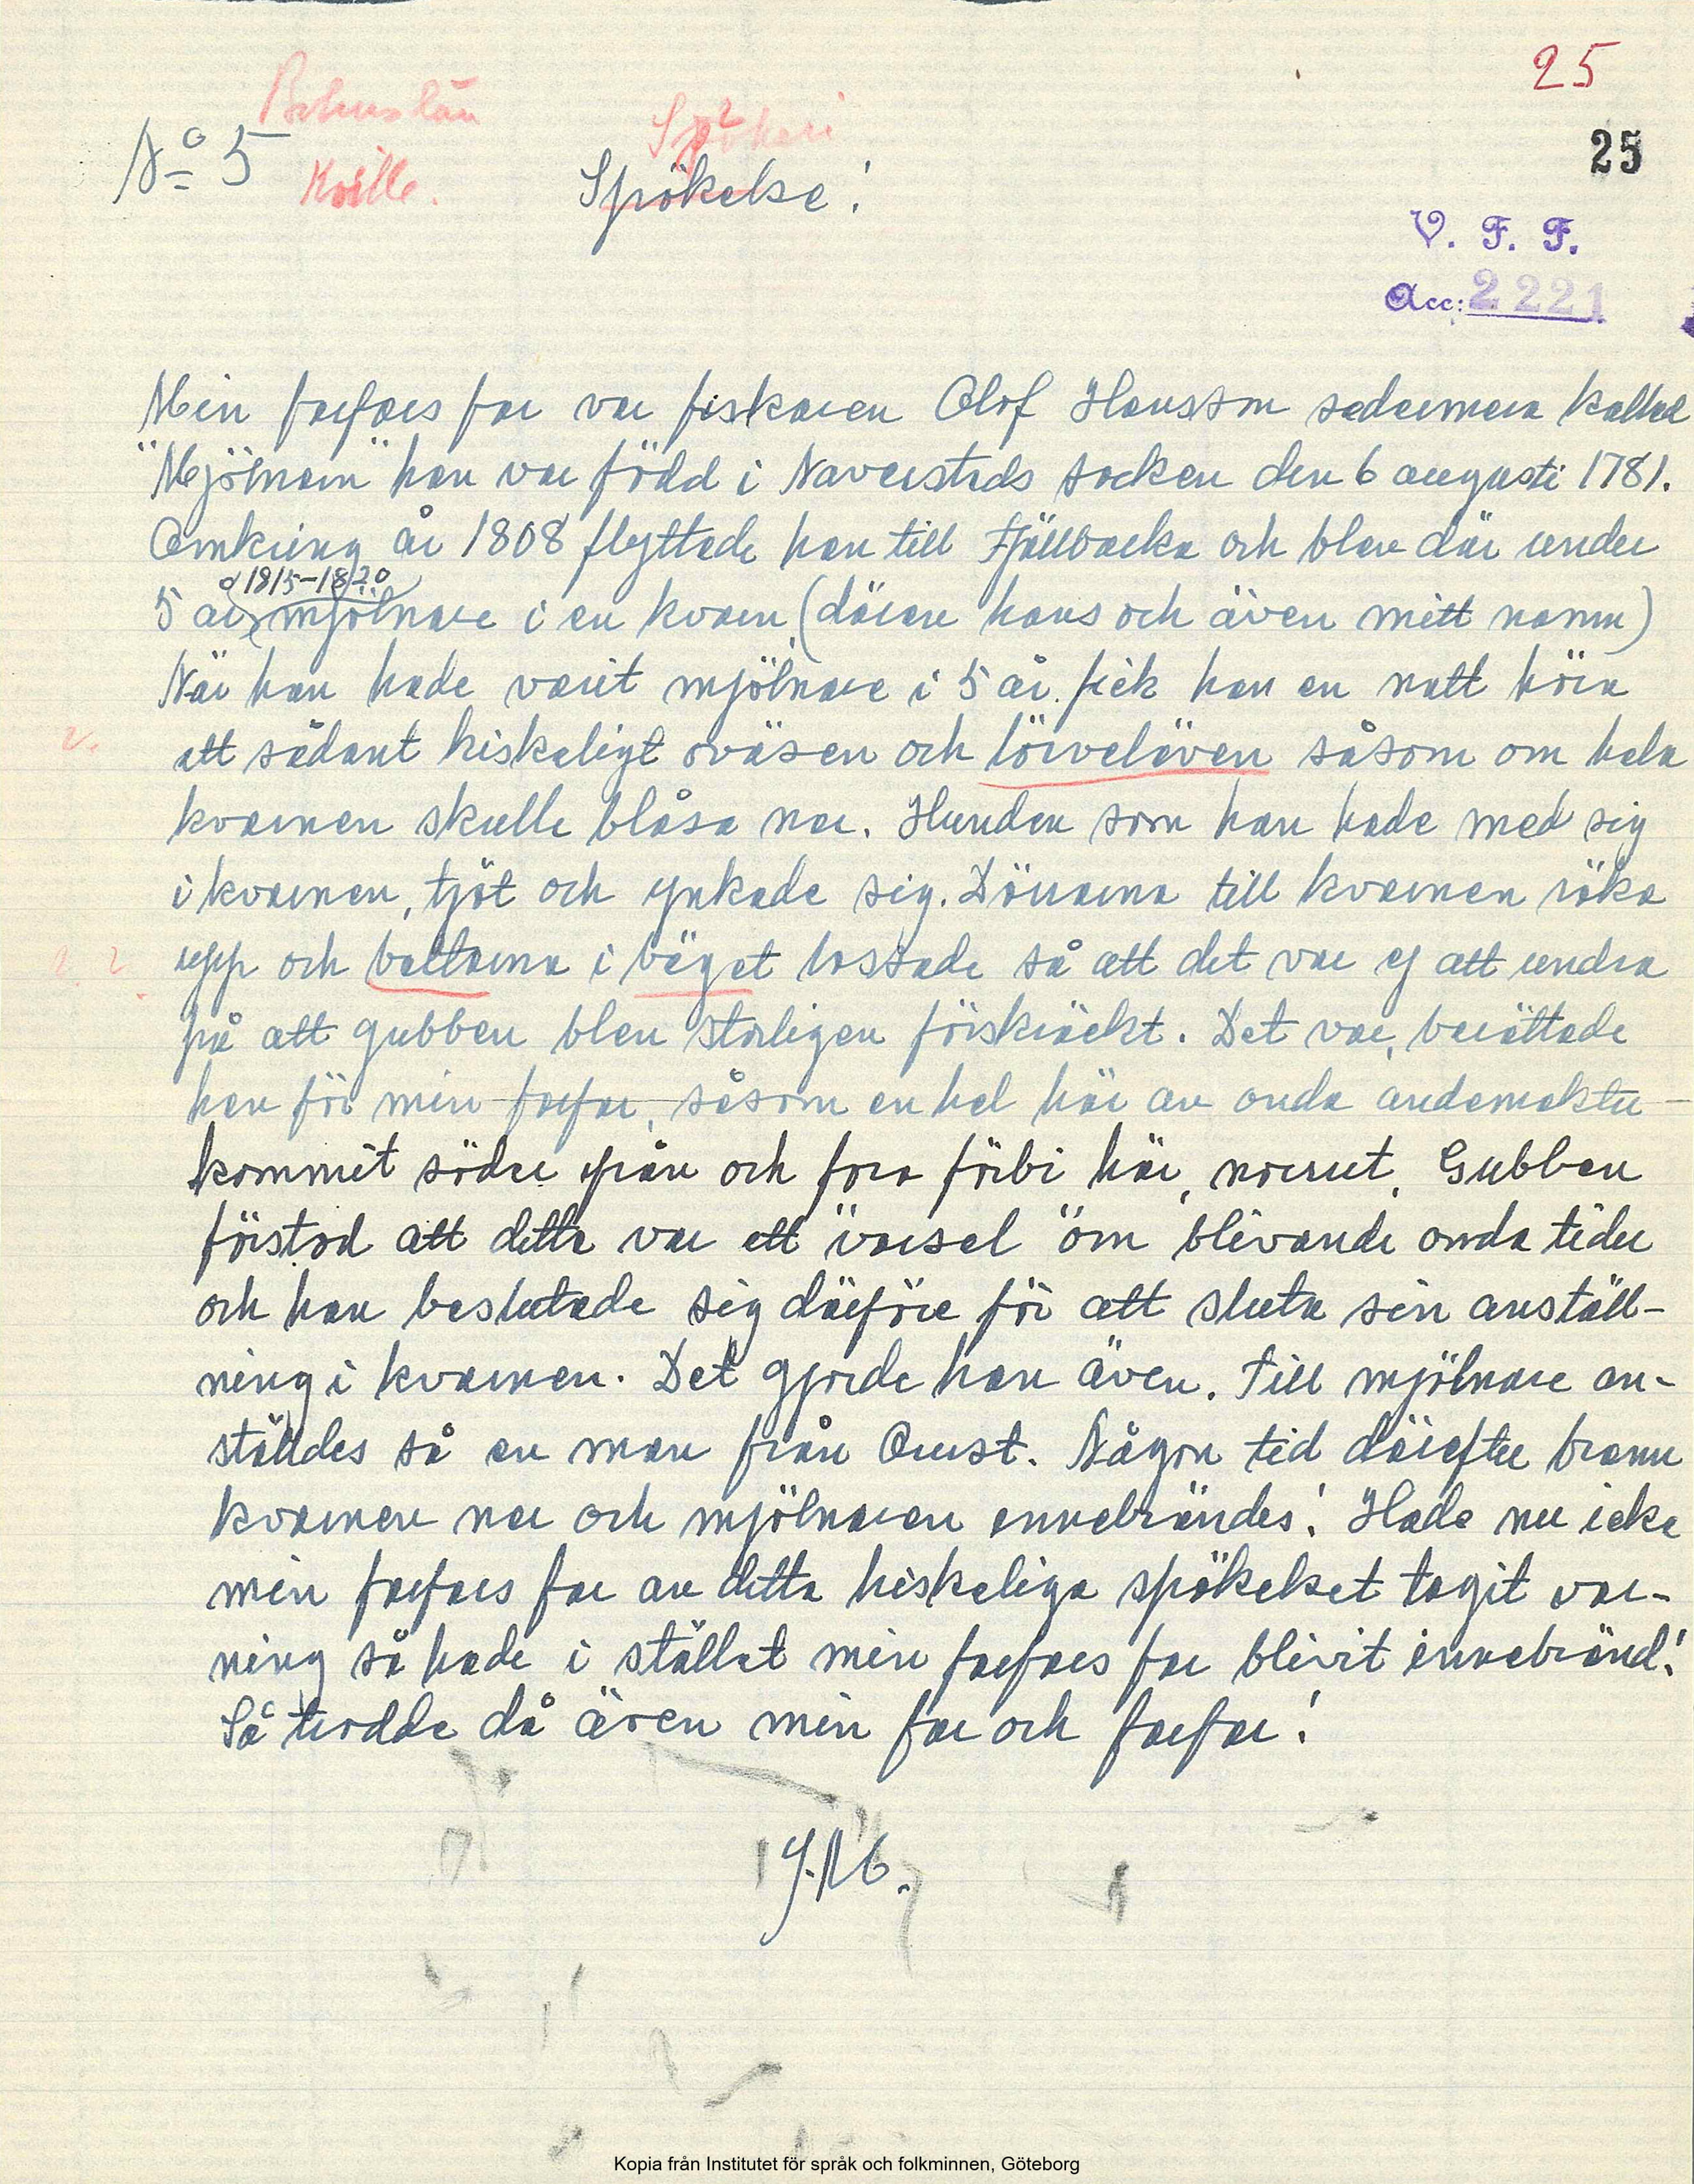 25
Bohuslän
Spökeri
2
No 5
Kville.
Spökelse!
25
V. F. F.
Acc: 2221
Min farfars far var fiskaren Olof Hansson sedermera kallad
"Mjölnarn" han var född i Naverstads socken den 6 augusti 1781.
Omkring år 1808 flyttade han till Fjällbacka och blev där under
1815-1820
5 år mjölnare i en kvarn (därav hans och även mitt namn)
När han hade varit mjölnare i 5 år fick han en natt höra
v. ett sådant hiskeligt oväsen och lörveläven såsom om hela
kvarnen skulle blåsa ner. Hunden som han hade med sig
i kvarnen, tjöt och ynkade sig. Dörrarna till kvarnen röko
upp och baltarna i väget lossade så att det var ej att undra
på att gubben blev storligen förskräckt. Det var, berättade
han för min farfar, såsom en hel här av onda andemakter
kommit söder från och foro förbi här, norrut. Gubben
förstod att detta var ett "varsel" om blivande onda tider
och han beslutade sig därföre för att sluta sin anställ-
ning i kvarnen. Det gjorde han även. Till mjölnare an-
ställdes så en man från Orust. Någon tid därefter brann
kvarnen ner och mjölnaren innebrändes! Hade nu icke
min farfars far av detta hiskeliga spökelset tagit var-
ning så hade i stället min farfars far blivit innebränd!
Så trodde då även min far och farfar!
J.M.
Kopia från Institutet för språk och folkminnen, Göteborg